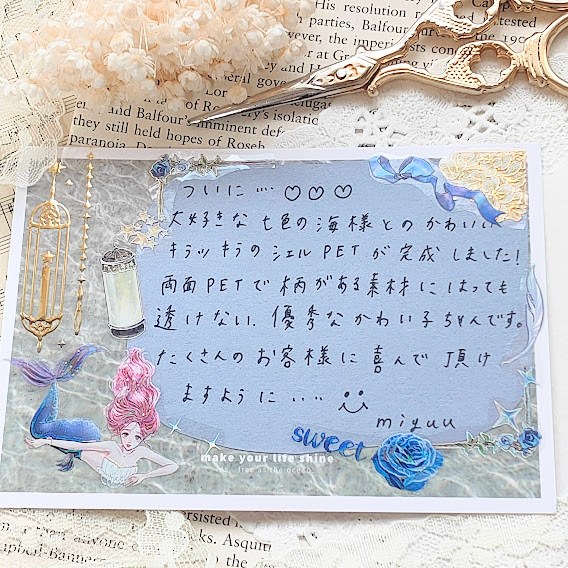 His resolution
parties, Balfour
however, the imperi
they still held hopes of Roseb
ついに… ♡♡♡
大好きな七色の海様とのかわいい
キラッキラのシェルPETが完成しました!
両面PETで柄がある素材にはっても
透けない、優秀なかわい子ちゃんです。
たくさんのお客様に喜んで頂け
ますように…
miyuu
sweet
make your life shine
free as the ocean